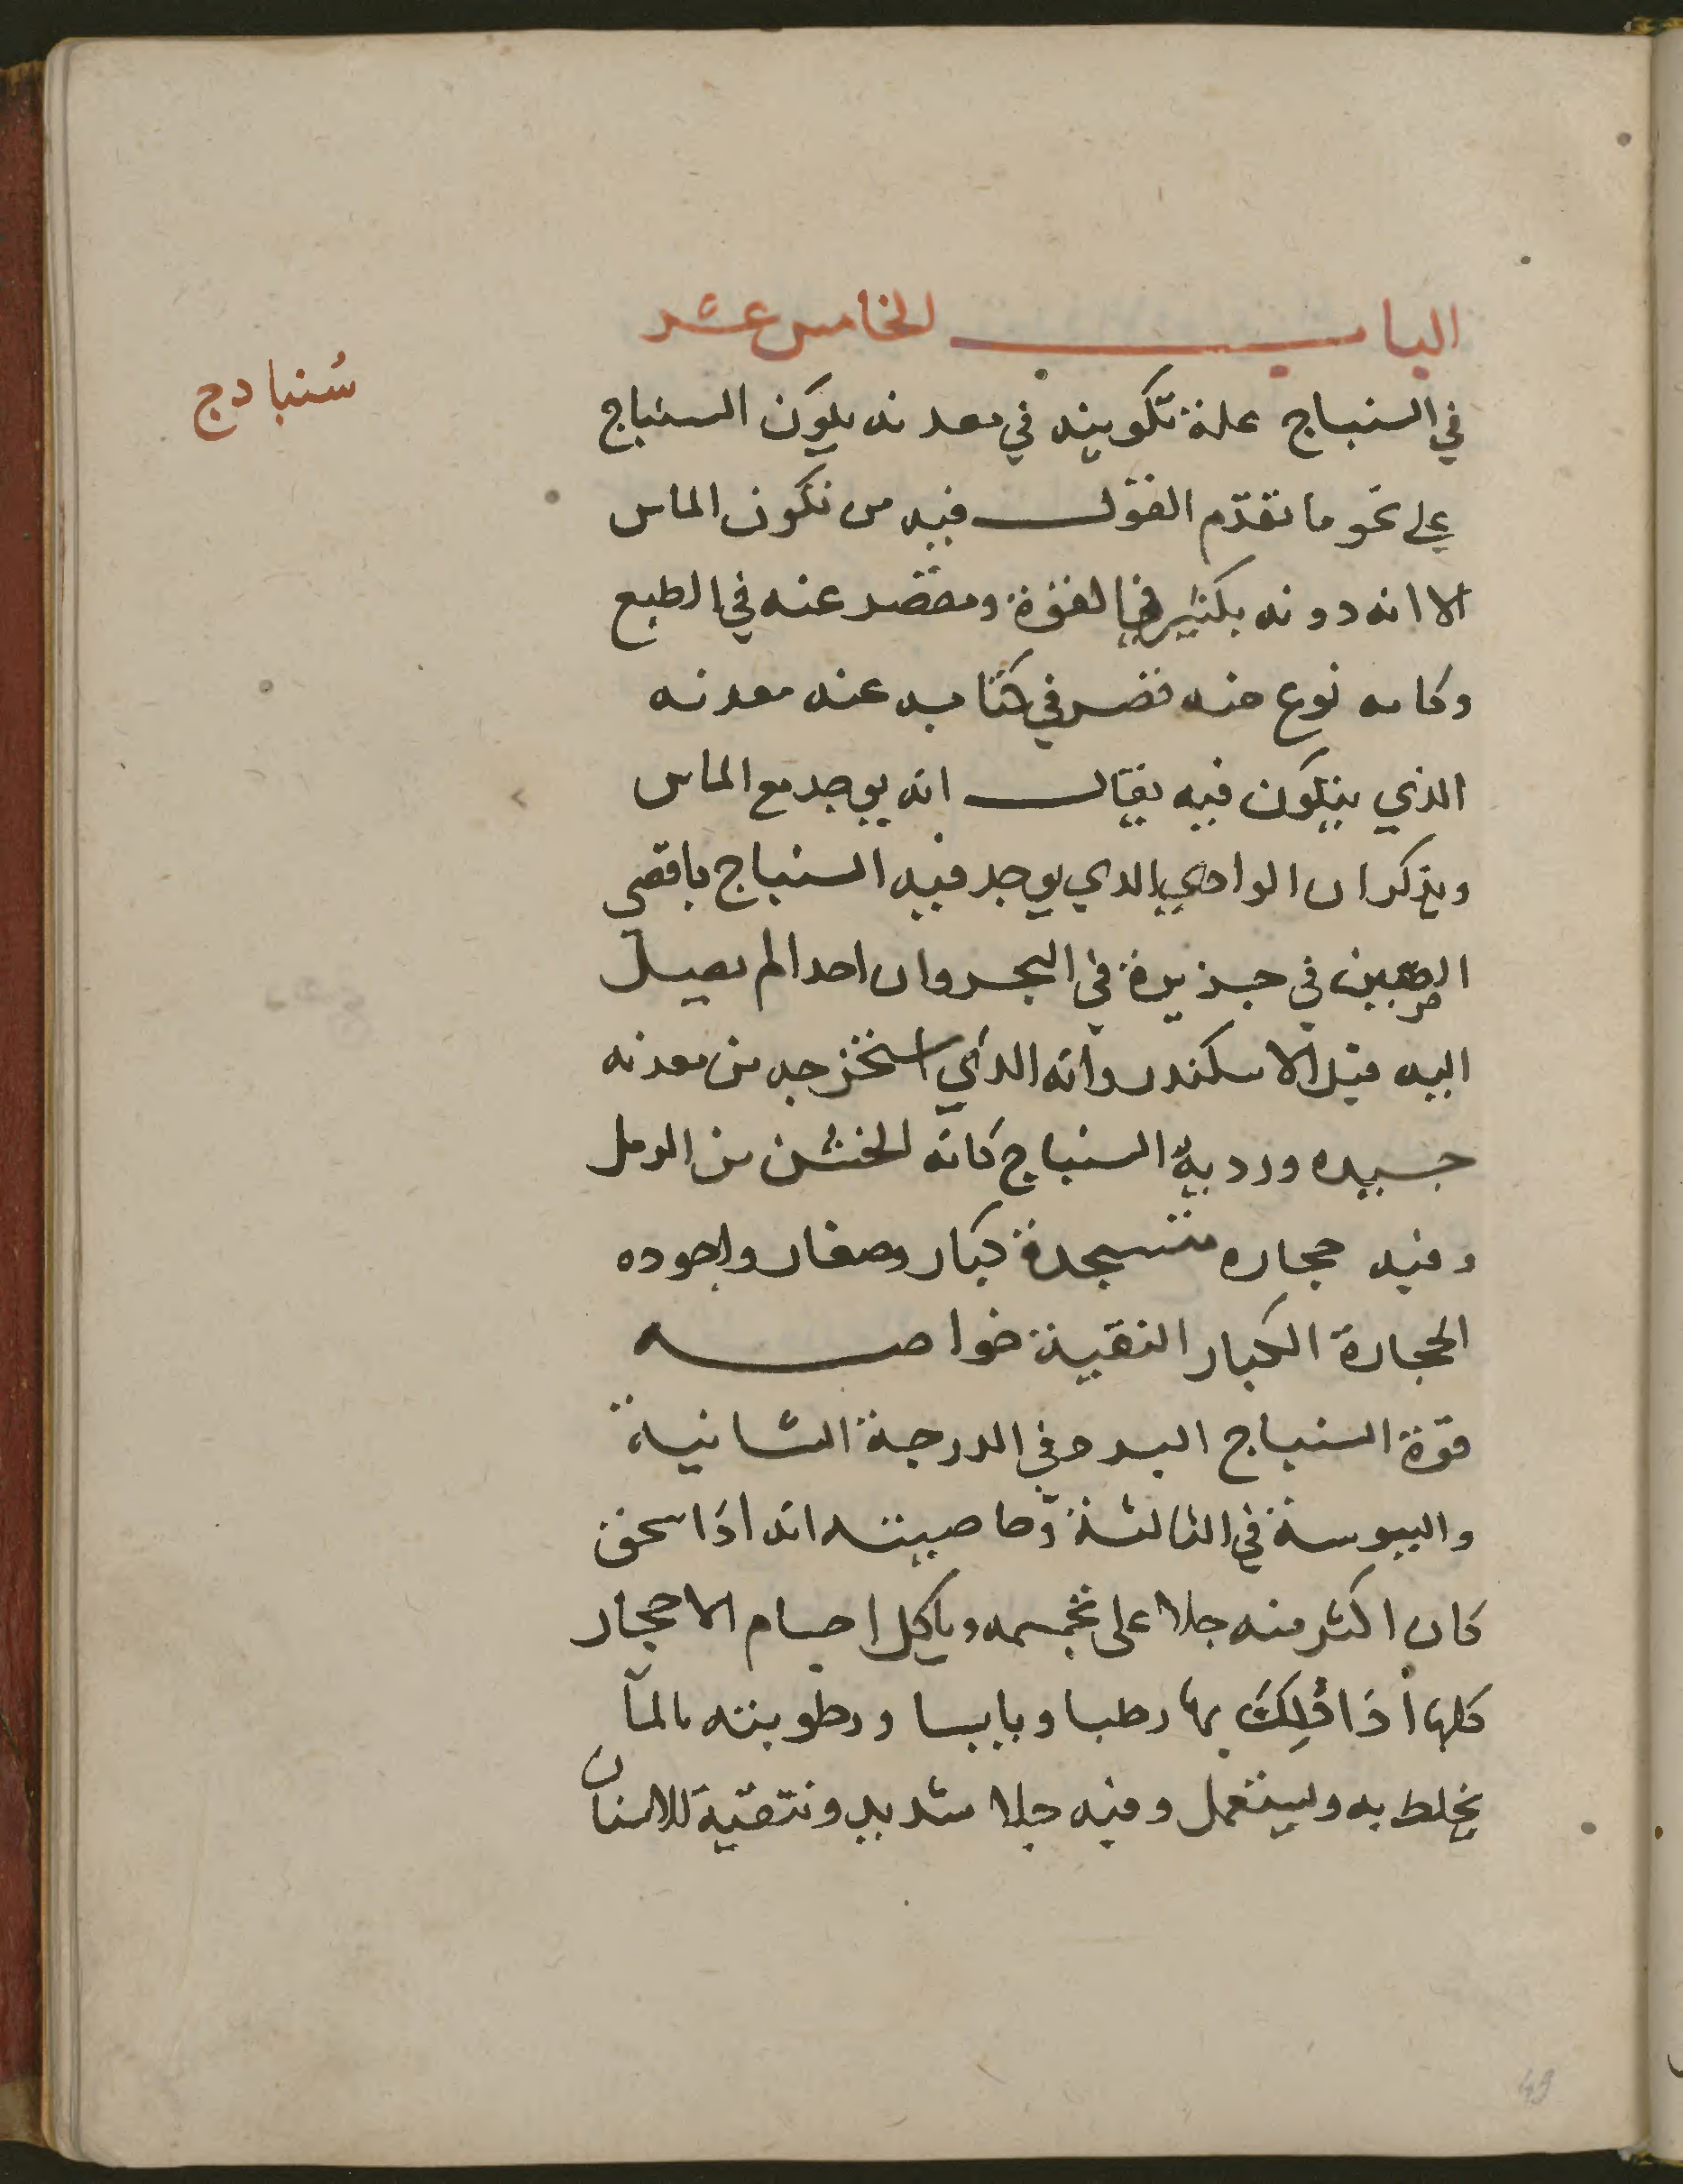 الباب الخامس عشر
سُنبادج
في السنباج علة تكوينه في معدنه يكون السنباج
علي نحو ما تقدّم القول فيه من تكون الماس
الا انه دونه بكثير في القوة ومقصر عنه في الطبع
وكانه نوع منه قصر في كتابه عنه معدنه
الذي يتكون فيه يقال انه يوجد مع الماس
ويذكر ان الوادي الذي يوجد فيه السنباج باقصي
الصين في جزيرة في البحر وان احدا لم يصل
اليه قبل الاسكندر وانه الذي استخرجه من معدنه
جيده ورديه السنباج كانه الخشن من الرمل
وفيه حجاره متسجدة كبار وصغار واجوده
الحجارة الكبار النقية خواصه
قوة السنباج البرد في الدرجة الثانية
واليبوسة في الثالثة وخاصيته انه اذا سحق
كان اكثر منه جلا على تجسمه وياكل اجسام الاحجار
كلها أذا دُلِكَ بها رطبا ويابسا ورطوبته بالمآ
يخلط به ويستعمل وفيه جلا شديد وتنقية للاسنان
49